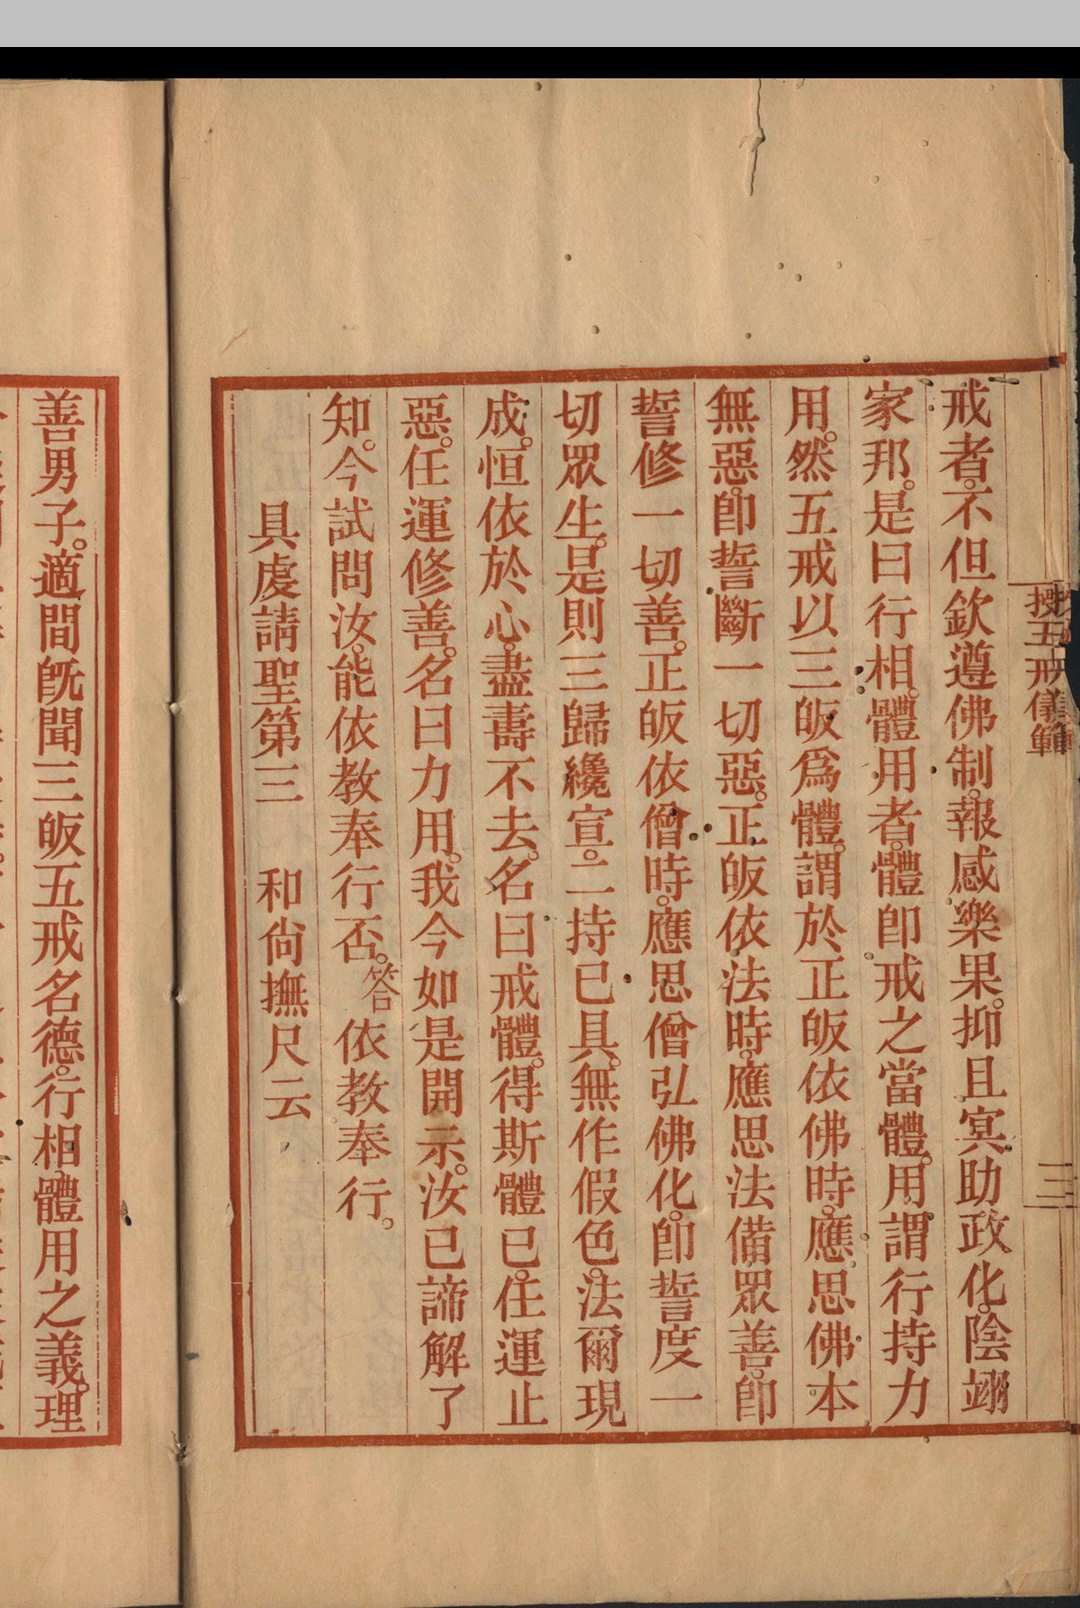 授五戒儀範
三
戒者。不但欽遵佛制。報感樂果。抑且冥助政化。陰翊
家邦。是曰行相。體用者。體卽戒之當體。用。謂行持力
用。然五戒以三皈爲體。謂於正皈依佛時。應思佛本
無惡。卽誓斷一切惡。正皈依法時。應思法備眾善。卽
誓修一切善。正皈依僧時。應思僧弘佛化。卽誓度一
切眾生。是則三歸纔宣。二持已具。無作假色。法爾現
成。恒依於心。盡壽不去。名曰戒體。得斯體已。任運止
惡。任運修善。名曰力用。我今如是開示。汝已諦解了
知。今試問汝。能依教奉行否。答依教奉行。
具虔請聖第三 和尙撫尺云
善男子。適間旣聞三皈五戒名德。行相體用之義。理